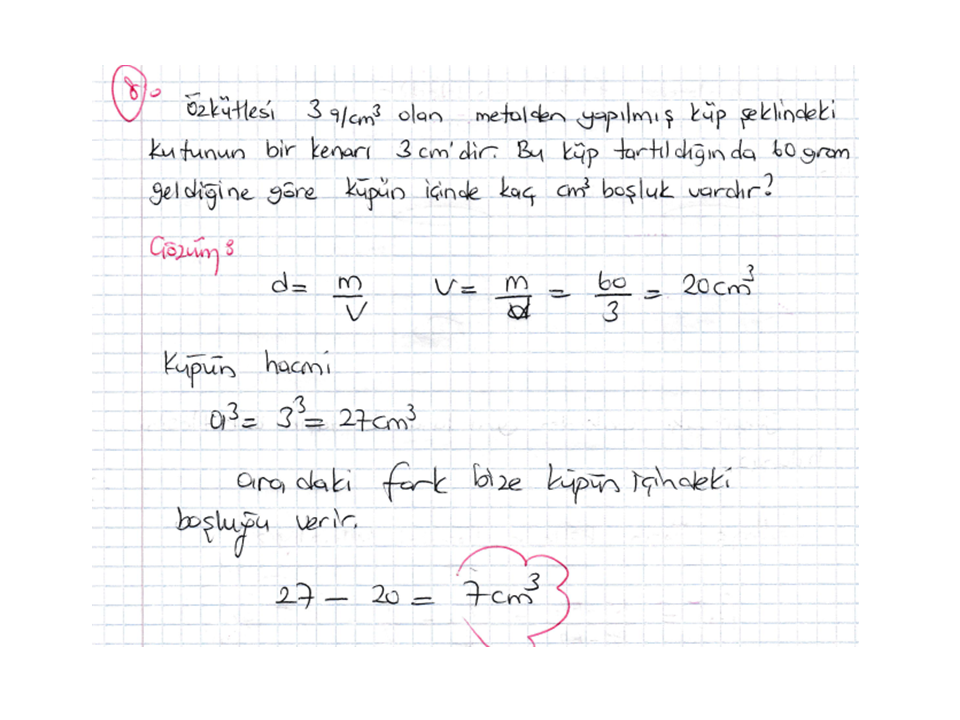 8.
Özkütlesi 3 g/cm³ olan metalden yapılmış küp şeklindeki
kutunun bir kenarı 3 cm'dir. Bu küp tartıldığında 60 gram
geldiğine göre küpün içinde kaç cm³ boşluk vardır?
Çözüm:
d = m/V V = m/d = 60/3 = 20 cm³
Küpün hacmi
a³ = 3³ = 27 cm³
aradaki fark bize küpün içindeki
boşluğu verir.
27 - 20 = 7 cm³